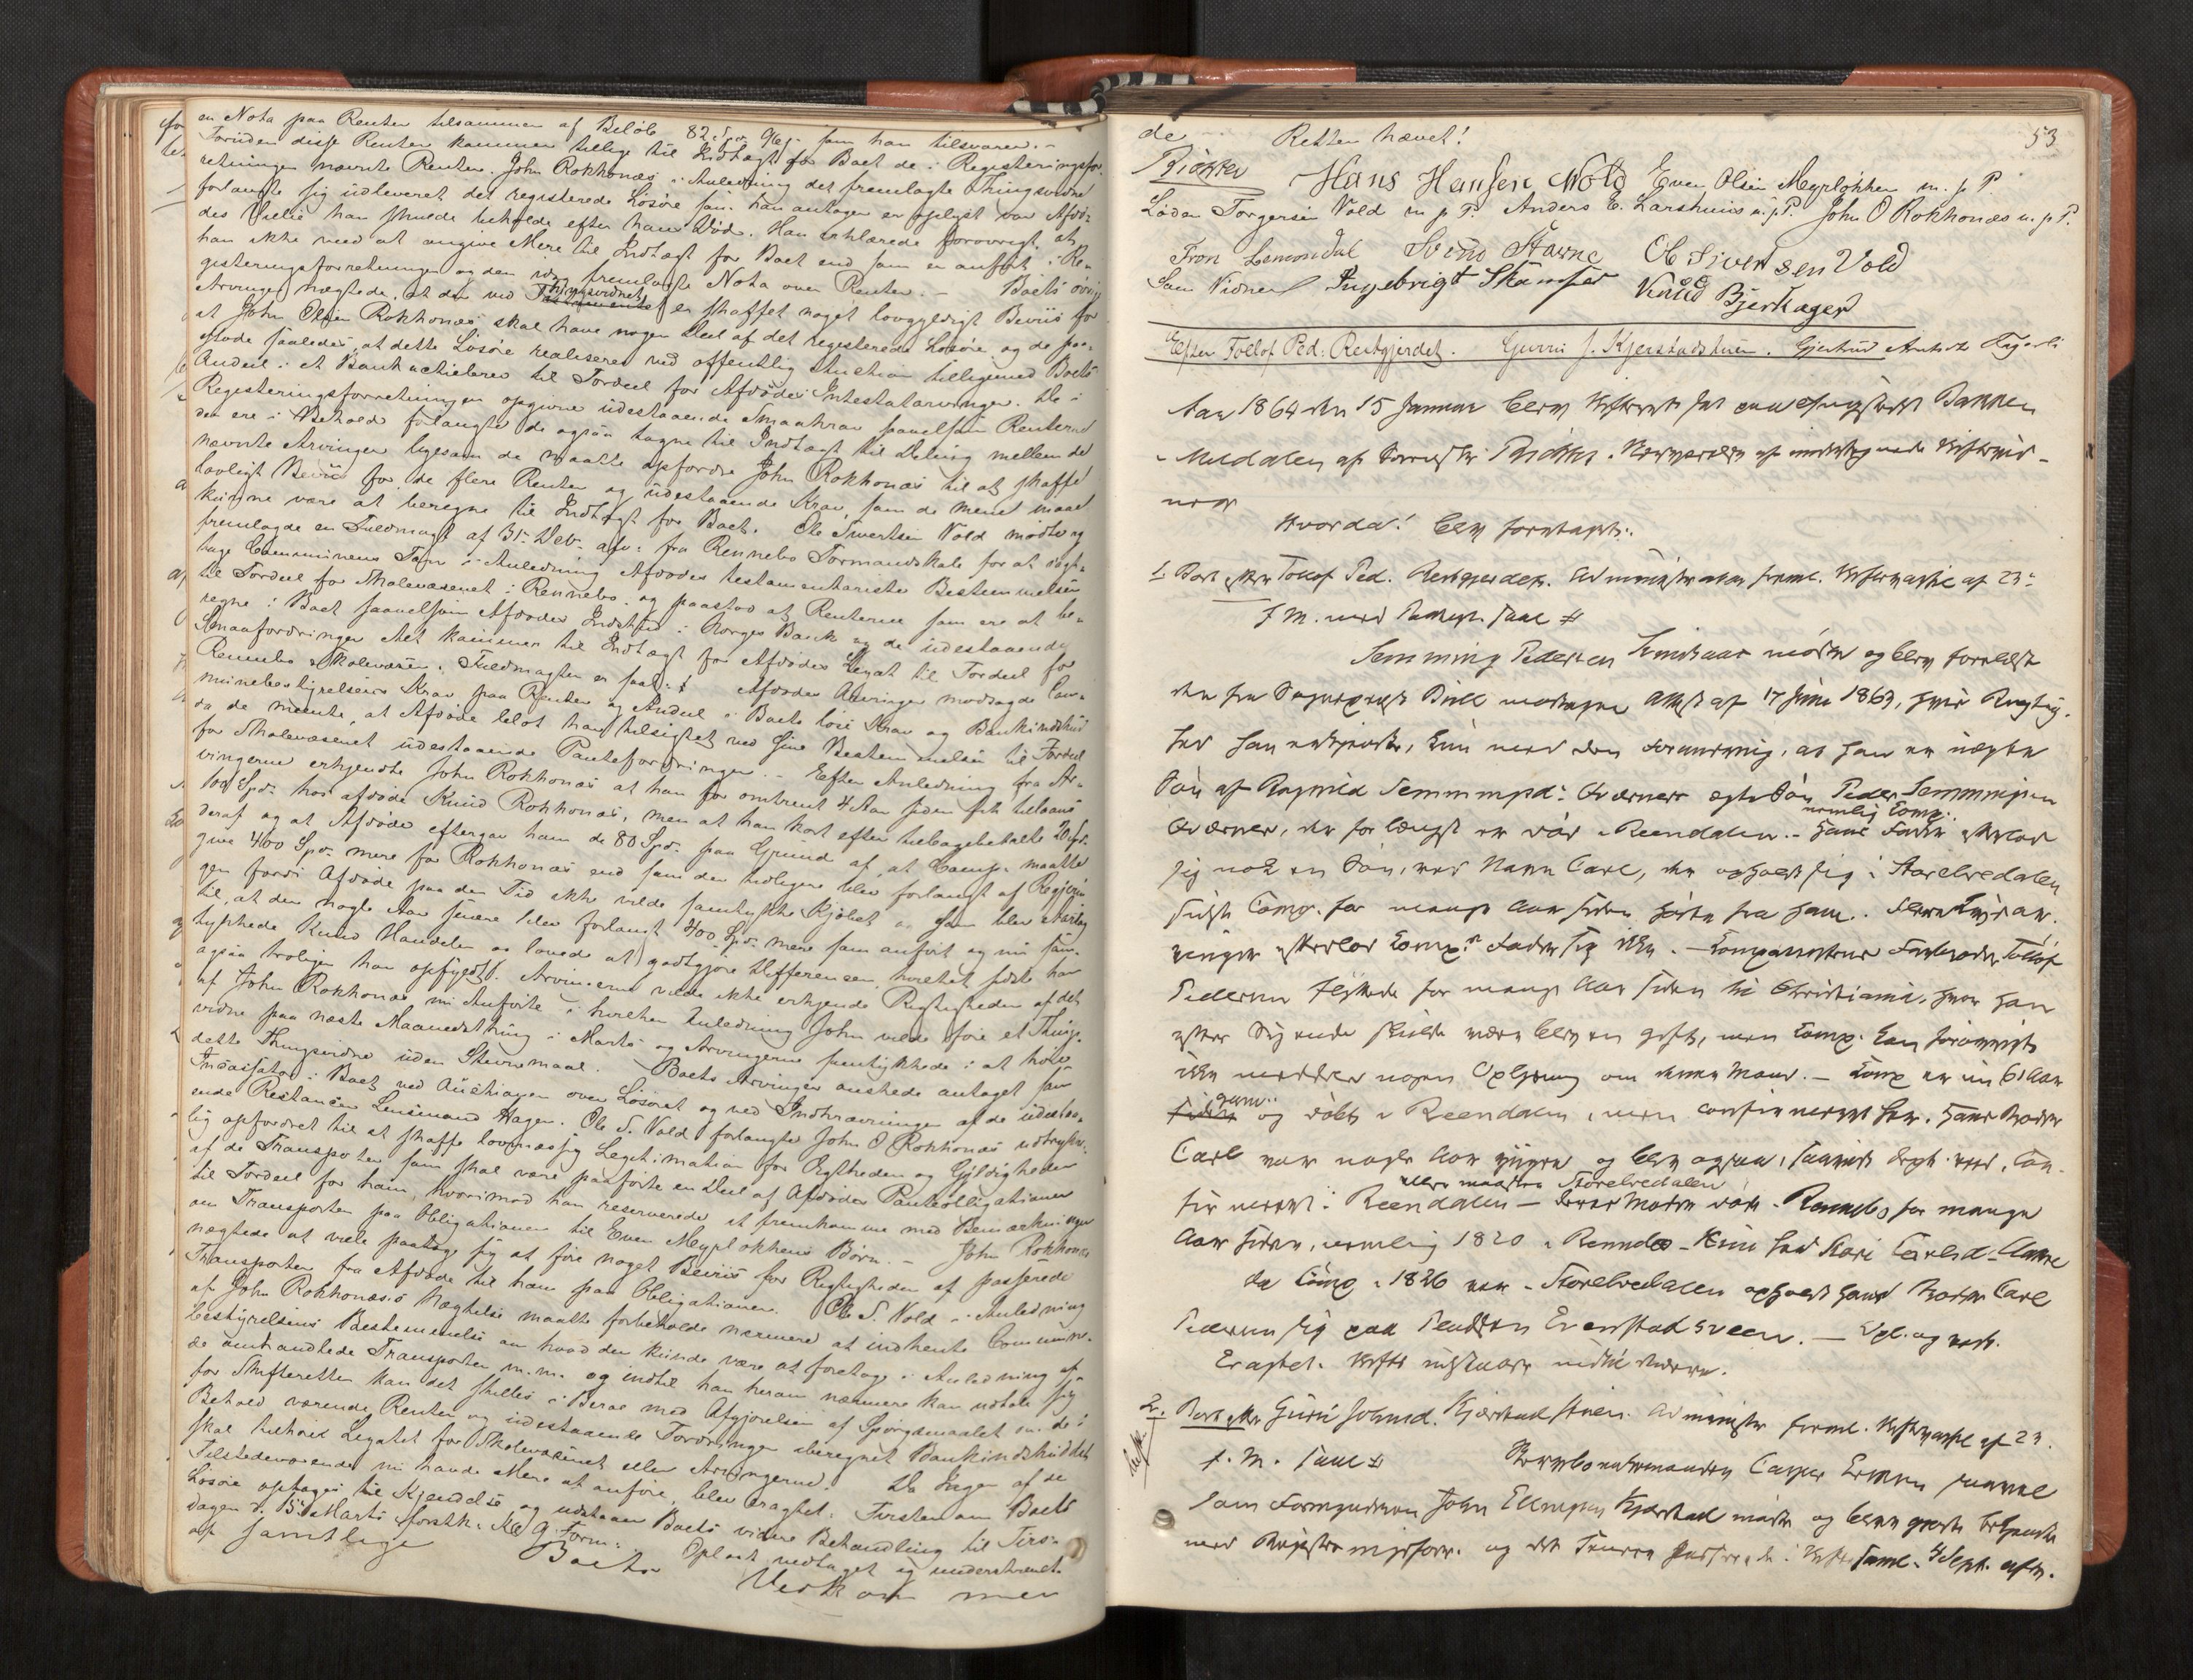 en Nota paa Renter tilsammen af Beløb 82 Spd 96 s som han tilsvarer. -
Foruden disse Renter kommer tillige til Indtægt for Boet de i Registeringsfor-
retningen nævnte Renter. John Rokhonæs i Anledning det fremlagte Thingsvidne
forlangte sig udleveret det registerede Løsøre som han antager er oplyst var Afdø-
des Villie han skulde beholde efter hans Død. Han erklærede forøvrigt at
han ikke veed at angive Mere til Indtægt for Boet end som er anført i Re-
gisteringsforretningen og den idag fremlagte Nota over Renter. - Boets øvrige
Arvinger nægtede, at der ved Thingsvidnet er skaffet noget lovgyldigt Beviis for
at John Olsen Rokhonæs skal have nogen Deel af det registerede Løsøre og de paa-
stode saaledes, at dette Løsøre realiseres ved offentlig Auction tilligemed Boets
Andeel i et Bank actiebrev til Fordeel for Afdødes Intestatarvinger. De i
Registeringsforretningen opgivne udestaaende Smaakrav saavelsom Renterne
der ere i Behold forlangte de ogsaa tagne til Indtægt til Deling mellem de
nævnte Arvinger ligesom de maatte opfordre John Rokhonæs til at skaffe
lovligt Beviis for de flere Renter og udestaaende Krav, som de meent maae
kunne være at beregne til Indtægt for Boet. Ole Sivertsen Vold mødte og
fremlagde en Fuldmagt af 31 Decbr. afv. fra Rennebo Formandskab for at vogt-
tage Communens Tarv i Anledning Afdødes testamentariske Bestemmelser
til Fordeel for Skolevæsenet i Rennebo. og paastod at Renterne som ere at be-
regne i Boet saavelsom Afdødes Indskud i Norges Bank og de udestaaende
Smaafordringer Alt kommer til Indtægt for Afdødes Legat til Fordeel for
Rennebo Skolevæsen. Fuldmagten er saal: # Afdødes Arvinger modsagde Com-
munebestyrelsens Krav paa Renter og Andeel i Boets løse Krav og Bankindskud
da de meente, at Afdøde blot har tilsigtet ved sine Bestemmelser til Fordeel
for Skolevæsenet udestaaende Pantefordringer. - Efter Anledning fra Ar-
vingerne erkjendte John Rokhonæs at han for omtrent 4 Aar siden fik tillaans
100 Spd. hos afdøde Knud Rokhonæs, men at han kort efter tilbagebetalte 20 Spd.
deraf og at Afdøde eftergav ham de 80 Spd. paa Grund af, at Comp. maatte
give 400 Spd. mere for Rokhonæs end som den tidligere blev forlangt af Regjerin
gen fordi Afdøde paa den Tid ikke vilde samtykke Kjøbet
til, at der nogle Aar senere blev forlangt 400 Spd. mere som anført og nu sam-
tykkede Knud Handelen og lovede at godtgjøre Differencen, hvilket sidste han
ogsaa troligen har opfyldt. Arvingerne vilde ikke erkjende Rigtigheden af det
af John Rokhonæs nu Anførte i hvilken Anledning John vilde føre et Things-
vidne paa næste Maanedsthing i Marts og Arvingerne samtykkede i at høre
dette Thingsvidne uden Stevnemaal. Boets Arvinger ønskede antaget som
Incassator i Boet ved Auctionen over Løsøret og ved Indkrævningen af de udestaa-
ende Restancer Lensmand Hagen. Ole S. Vold forlangte John O Rokhonæs udtrykke-
lig opfordret til at skaffe lovmæssig Legitimation for Ægtheden og Gyldigheden
af de Transporter som skal være paaførte en Deel af Afdødes Panteobligationer
til Fordeel for ham, hvorimod han reserverede at fremkomme med Bemærkninger
om Transporten paa Obligationer til Even Meyslokkens Børn. - John Rokhonæs
nægtede at ville paatage sig at føre noget Beviis for Rigtigheden af passerede
Transporter fra Afdøde til ham paa Obligationer. Ole S. Vold i Anledning
af John Rokhonæs's Nægtelse maatte forbeholde nærmere at indhente Commune-
bestyrelsens Bestemmelse om hvad der kunde være at foretage i Anledning af
de omhandlede Transporter m.m. og indtil han herom nærmere kan udtale sig
for Skifteretten kan det stilles i Beroe med Afgjørelsen af Spørgsmaalet om de i
Behold værende Renter og udestaaende Fordringer iberegnet Bankindskuddet
skal tilhøre Legatet for Skolevæsenet eller Arvingerne. Da Ingen af de
Tilstedeværende nu havde Mere at anføre, blev eragtet: Forsten om Boets
Løsøre optages til Kjendelse og udstaaer Boets videre Behandling til Tirs-
dagen d. 15 Marts førstk. Kl. 9 Form: Oplæst vedtaget og underskrevet
af samtlige Boets Vedkommen
53
de Retten hævet!
Bidkker Hans Hansen Wold Even Olsen Meysløkken m. p. P.
Loden Torgersen Vold m p P. Anders E. Larshuus m.p.P. John O Rokhonæs m. p P.
Tron Lemondal Svend Stavne Ole Sivertsen Vold
Som Vidner Ingebrigt Skamfer Knud Bjerkager
Efter Tollof Ped. Reitgjerdet. Gurri J. Kjerstadstuen. Gjertrud
Aar 1864 den 15 Januar blev Skifteret sat paa Bakken
i Meldalen af Sorenskr. . Nærværelse af undertegnede Skiftevid-
ner
Hvorda! blev foretaget:
1 Boet efter Tollof Ped. Reitgjerdet. Administrator freml. af 23
f M. med saal #
Semming Pedersen mødte og blev forelæst
den fra Sognepræst Bull modtagne Attest af 17 Juni 1863, hvis Rigtig-
hed han erkjendte, kun med den Formening, at han er uægte
Søn af Ragnild Semmingsd: Qværner ægte Søn Peder Semmingsen
nemlig Comp.
Qværner, der for længst er død i Reendalen. - Hans Fader efterlod
sig nok en Søn, ved Navn Carl, der opholdt sig i Storelvedalen
sidst Comp. for mange Aar siden hørte fra ham. Flere
efterlod Comp.s Fader sig ikke. - Comparentens Farbroder Tollof
Pedersen flyttede for mange Aar siden til Christiania, hvor han
efter Sigende skulde være bleven gift, men Comp. kan forøvrigt
ikke meddele nogen Oplysning om denne Mand. - Comp er nu 61 Aar
gam..
og døbt i Reendalen, men confirmeret her. Hans Broder
Carl var nogle Aar yngre og blev ogsaa, saavidt Dept. veed, con-
eller maaske Storelvedalen
firmeret i Reendalen - Deres Moder døde i Rennebo for mange
Aar siden, nemlig 1820 i Rennebo - Hun hed Kari Carlsd.
da Comp i 1826 var i Storelvedalen opholdt hans Broder Carl
Pedersen sig paa Pladsen Evenstadsveen. - Opl. og vedt.
Eragtet. Skiftet udstaaer indtil videre.
2. Boet efter Guru Johnsd. Kjerstadstuen. Administr. freml. af 23.
f. M. saal # Casper saavel
som Formynderen John Ellingsen Kjerstad mødte og blev gjort bekjendt
med Registreringsforr. og det Skifte saml. 4 Sept. afv.